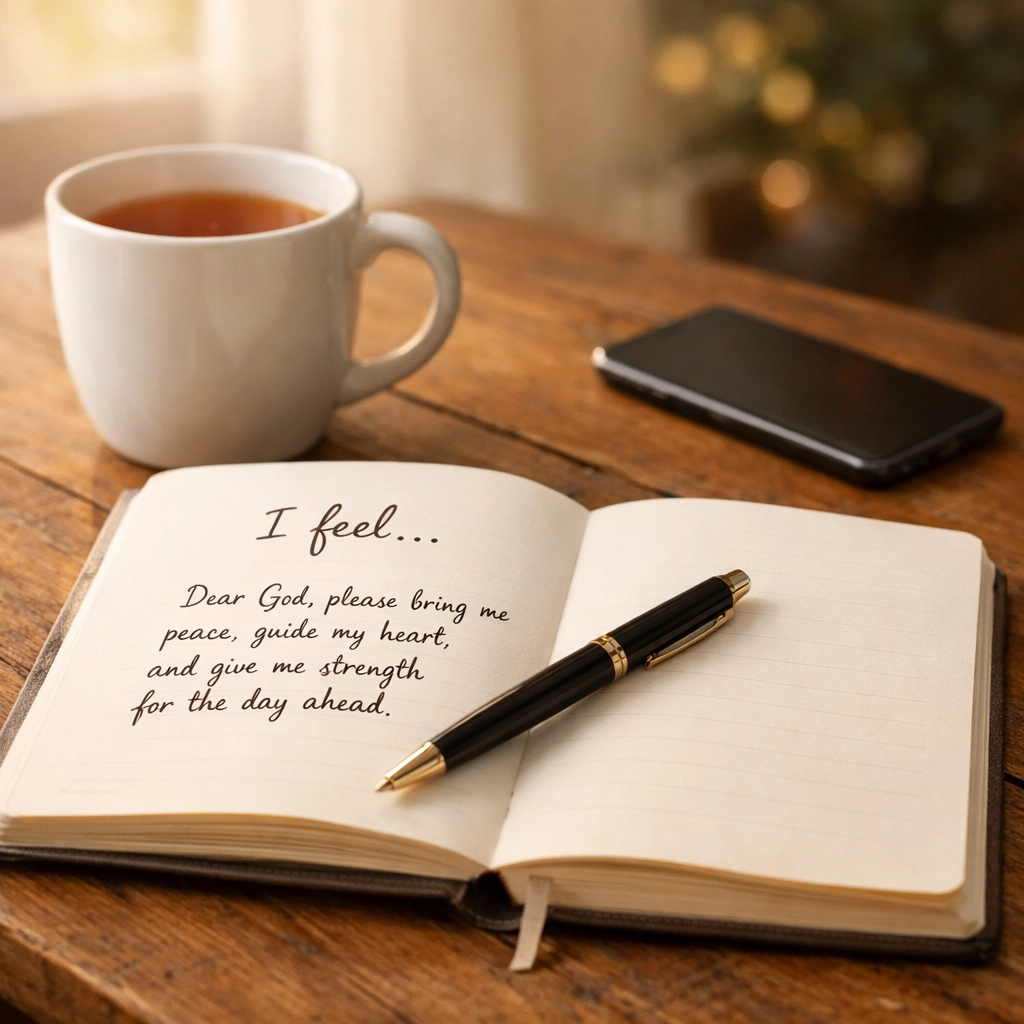 I feel...
Dear God, please bring me
peace, guide my heart,
and give me strength
for the day ahead.